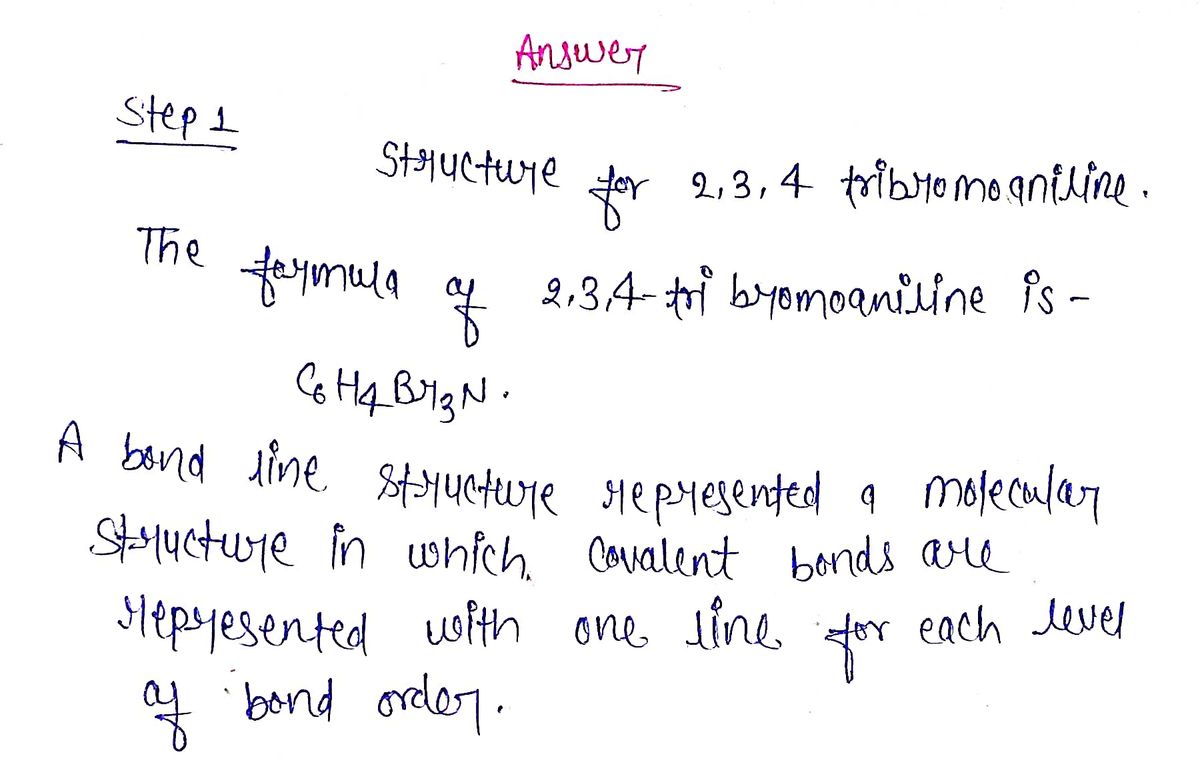 Answer
Step 1
Structure for 2,3,4 tribromoaniline.
The formula of 2,3,4-tri bromoaniline is -
C6H4Br3N.
A bond line structure represented a molecular
structure in which covalent bonds are
represented with one line for each level
of bond order.